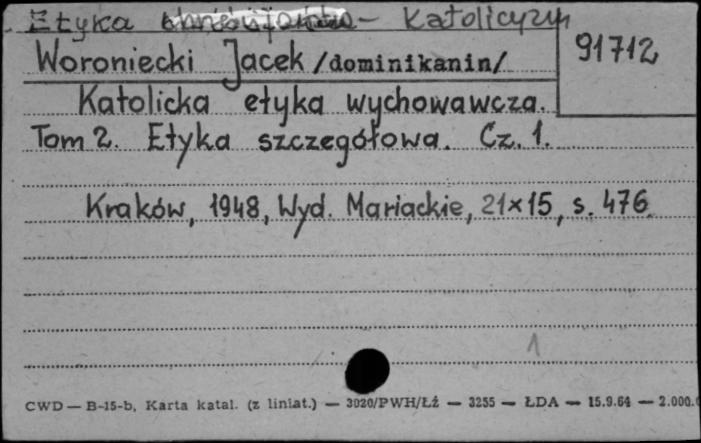 Etyka chrześcijańska - Katolicyzm
Woroniecki Jacek /dominikanin/
91712
Katolicka etyka wychowawcza.
Tom 2. Etyka szczegółowa. Cz. 1.
Kraków, 1948, Wyd. Mariackie, 21x15, s. 476.
1
CWD — B-15-b, Karta katal. (z liniat.) — 3020/PWH/Łź — 3255 — ŁDA — 15.9.64 — 2.000.0